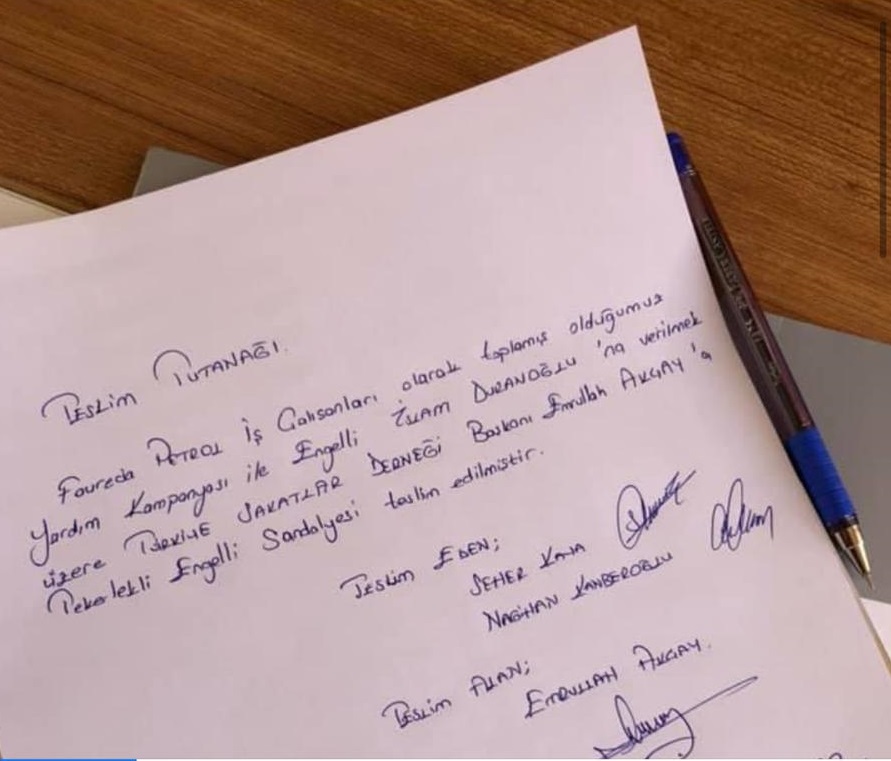 TESLİM TUTANAĞI.
Faureda PETROL İŞ Çalışanları olarak toplamış olduğumuz
Yardım Kampanyası ile Engelli İSLAM DURANOĞLU 'na verilmek
üzere TÜRKİYE SAKATLAR DERNEĞİ Başkanı Emrullah AKÇAY 'a
Tekerlekli Engelli Sandalyesi teslim edilmiştir.
TESLİM EDEN;
SEHER KAYA
NAGİHAN KANBEROĞLU
TESLİM ALAN;
EMRULLAH AKÇAY.